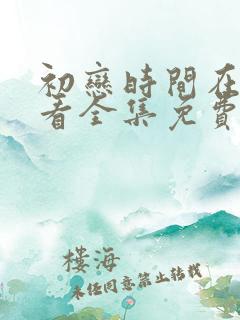 初戀時間在
看全集免費
樓海
未经同意禁止转载